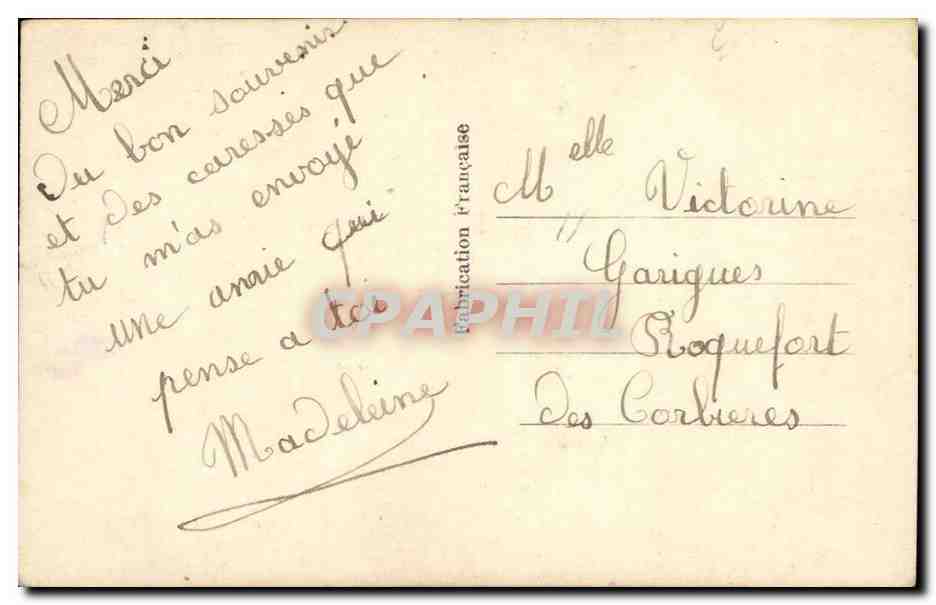 Merci
Du bon souvenir
et des caresses que
tu m'as envoyé
une amie qui
pense a toi
Madeleine
Fabrication Française
CPAPHIL
Melle Victorine
Garigues
Roquefort
des Corbieres